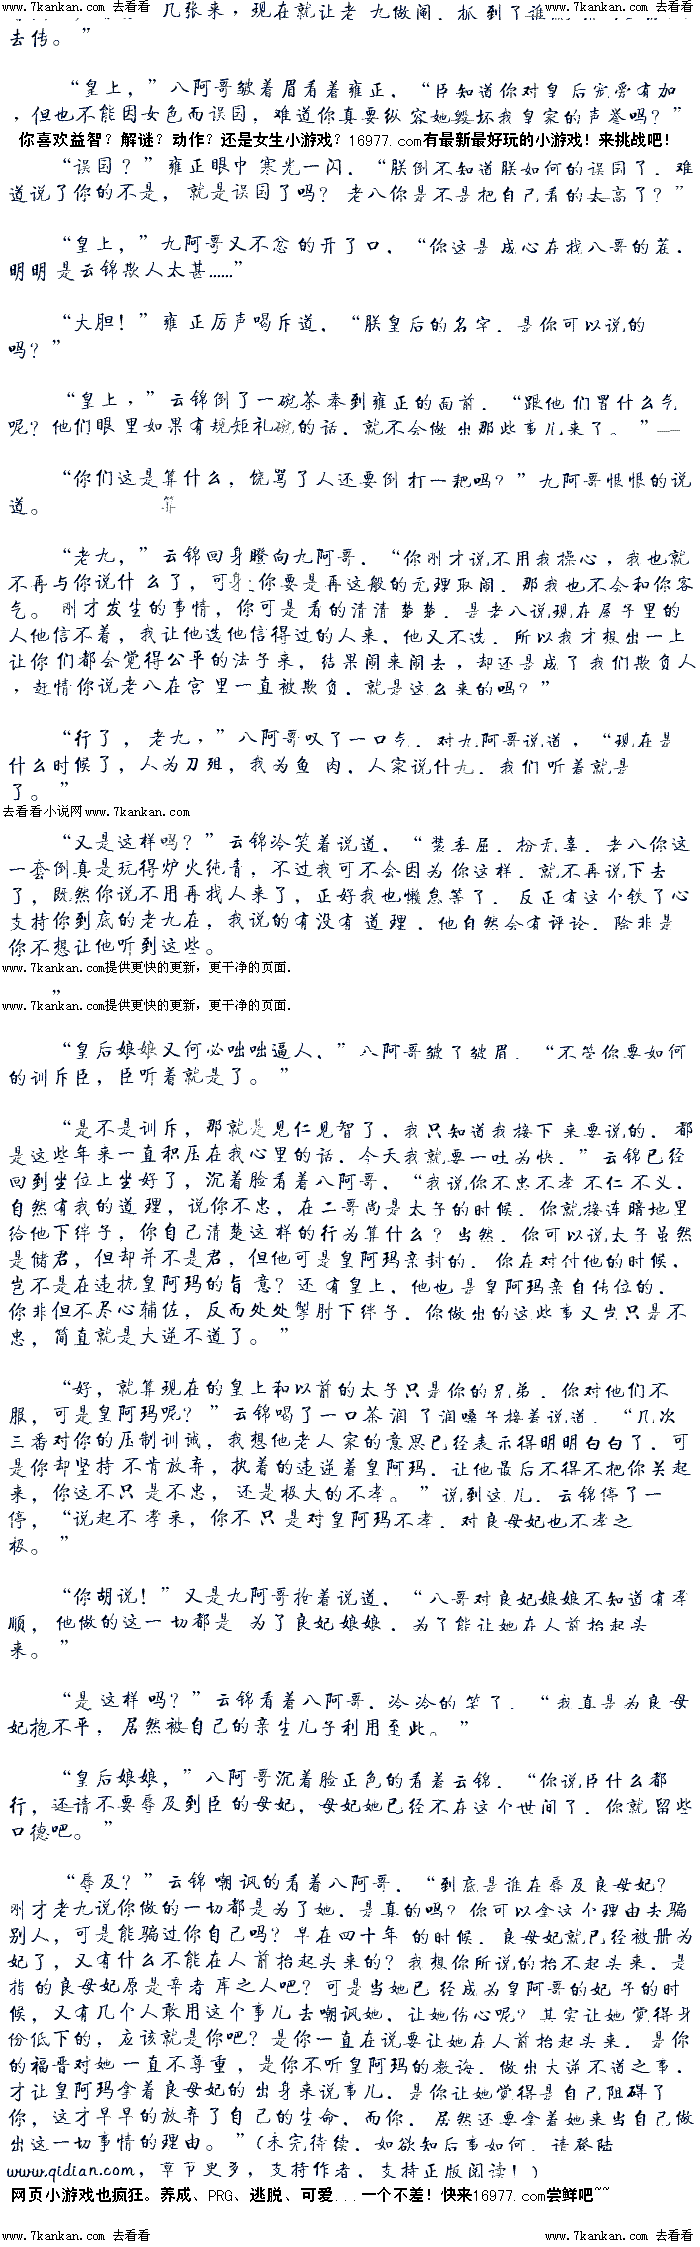 www.7kankan.com 去看看 www.7kankan.com 去看看
几张来，现在就让老九做阄．抓到了谁
去传。”
“皇上，”八阿哥皱着眉看着雍正．“臣知道你对皇后宠爱有加
，但也不能因女色而误国，难道你真要纵容她毁坏我皇家的声誉吗？”
你喜欢益智？解谜？动作？还是女生小游戏？16977.com有最新最好玩的小游戏！来挑战吧！
“误国？”雍正眼中寒光一闪．“朕倒不知道朕如何的误国了．难
道说了你的不是，就是误国了吗？老八你是不是把自己看的太高了？”
“皇上，”九阿哥又不忿的开了口．“你这是成心在找八哥的茬．
明明是云锦欺人太甚……”
“大胆！”雍正厉声喝斥道．“朕皇后的名字．是你可以说的
吗？”
“皇上，”云锦倒了一碗茶奉到雍正的面前．“跟他们置什么气
呢？他们眼里如果有规矩礼碗的话．就不会做出那些事儿来了。”
“你们这是算什么，饶骂了人还要倒打一耙吗？”九阿哥恨恨的说
道。 算
“老九，”云锦回身瞪向九阿哥．“你刚才说不用我操心，我也就
不再与你说什么了，可身你要是再这般的无理取闹．那我也不会和你客
气。刚才发生的事情，你可是看的清清楚楚．是老八说现在屋子里的
人他信不着，我让他选他信得过的人来．他又不选．所以我才想出一上
让你们都会觉得公平的法子来，结果闹来闹去，却还是成了我们欺负人
，赶情你说老八在宫里一直被欺负．就是这么来的吗？”
“行了，老九，”八阿哥叹了一口气．对九阿哥说道，“现在是
什么时候了，人为刀殂，我为鱼肉．人家说什九．我们听着就是
了。”
去看看小说网www.7kankan.com
“又是这样吗？”云锦冷笑着说道．“装委屈．扮无辜．老八你这
一套倒真是玩得炉火纯青，不过我可不会因为你这样．就不再说下去
了，既然你说不用再找人来了，正好我也懒怠等了．反正有这个铁了心
支持你到底的老九在，我说的有没有道理．他自然会有评论．除非是
你不想让他听到这些。
www.7kankan.com提供更快的更新，更干净的页面.
”
www.7kankan.com提供更快的更新，更干净的页面.
“皇后娘娘又何必咄咄逼人．”八阿哥皱了皱眉．“不管你要如何
的训斥臣，臣听着就是了。”
“是不是训斥，那就是见仁见智了．我只知道我接下来要说的．都
是这些年来一直积压在我心里的话．今天我就要一吐为快．”云锦已经
回到坐位上坐好了，沉着脸看着八阿哥，“我说你不忠不孝不仁不义．
自然有我的道理，说你不忠，在二哥尚是太子的时候．你就接连暗地里
给他下绊子，你自己清楚这样的行为算什么？当然．你可以说太子虽然
是储君，但却并不是君，但他可是皇阿玛亲封的．你在对付他的时候．
岂不是在违抗皇阿玛的旨意？还有皇上，他也是皇阿玛亲自传位的．
你非但不尽心辅佐，反而处处掣肘下绊子．你做出的这些事又岂只是不
忠，简直就是大逆不道了。”
“好，就算现在的皇上和以前的太子只是你的兄弟．你对他们不
服，可是皇阿玛呢？”云锦喝了一口茶润了润嗓子接着说道．“几次
三番对你的压制训诫，我想他老人家的意思已经表示得明明白白了．可
是你却坚持不肯放弃，执着的违逆着皇阿玛．让他最后不得不把你关起
来，你这不只是不忠，还是极大的不孝。”说到这儿．云锦停了一
停，“说起不孝来，你不只是对皇阿玛不孝．对良母妃也不孝之
极。”
“你胡说！”又是九阿哥抢着说道，“八哥对良妃娘娘不知道有孝
顺，他做的这一切都是为了良妃娘娘．为了能让她在人前抬起头
来。”
“是这样吗？”云锦看着八阿哥．冷冷的笑了．“我真是为良母
妃抱不平，居然被自己的亲生儿子利用至此。”
“皇后娘娘，”八阿哥沉着脸正色的看着云锦．“你说臣什么都
行，还请不要辱及到臣的母妃，母妃她已经不在这个世间了．你就留些
口德吧。”
“辱及？”云锦嘲讽的看着八阿哥．“到底是谁在辱及良母妃？
刚才老九说你做的一切都是为了她．是真的吗？你可以拿这个理由去骗
别人，可是能骗过你自己吗？早在四十年的时候．良母妃就已经被册为
妃了，又有什么不能在人前抬起头来的？我想你所说的抬不起头来．是
指的良母妃原是辛者库之人吧？可是当她已经成为皇阿哥的妃子的时
候，又有几个人敢用这个事儿去嘲讽她．让她伤心呢？其实让她觉得身
份低下的，应该就是你吧？是你一直在说要让她在人前抬起头来．是你
的福晋对她一直不尊重，是你不听皇阿玛的教诲．做出大逆不道之事．
才让皇阿玛拿着良母妃的出身来说事儿．是你让她觉得是自己阻碍了
你，这才早早的放弃了自己的生命．而你．居然还要拿着她来当自己做
出这一切事情的理由。”（未完待续．如欲知后事如何．请登陆
www.qidian.com，章节更多，支持作者．支持正版阅读！）
网页小游戏也疯狂。养成、PRG、逃脱、可爱...一个不差！快来16977.com尝鲜吧~~
www.7kankan.com 去看看 www.7kankan.com 去看看